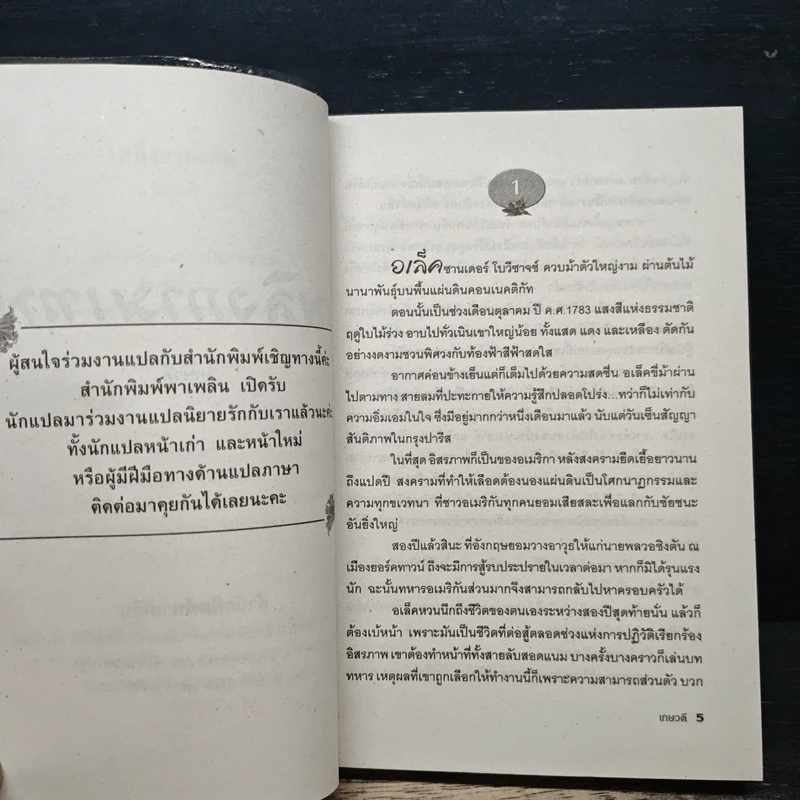 ผู้สนใจร่วมงานแปลกับสำนักพิมพ์เชิญทางนี้ค่ะ
สำนักพิมพ์พาเพลิน เปิดรับ
นักแปลมาร่วมงานแปลนิยายรักกับเราแล้วนะคะ
ทั้งนักแปลหน้าเก่า และหน้าใหม่
หรือผู้มีฝีมือทางด้านแปลภาษา
ติดต่อมาคุยกันได้เลยนะคะ
1
อเล็คซานเดอร์ โบวีซาจช์ ควบม้าตัวใหญ่งาม ผ่านต้นไม้
นานาพันธุ์บนพื้นแผ่นดินคอนเนคติกัท
ตอนนั้นเป็นช่วงเดือนตุลาคม ปี ค.ศ.1783 แสงสีแห่งธรรมชาติ
ฤดูใบไม้ร่วง อาบไปทั่วเนินเขาใหญ่น้อย ทั้งแสด แดง และเหลือง ตัดกัน
อย่างงดงามชวนพิศวงกับท้องฟ้าสีฟ้าสดใส
อากาศค่อนข้างเย็นแต่ก็เต็มไปด้วยความสดชื่น อเล็คขี่ม้าผ่าน
ไปตามทาง สายลมที่ปะทะกายให้ความรู้สึกปลอดโปร่ง...ทว่าก็ไม่เท่ากับ
ความอิ่มเอมในใจ ซึ่งมีอยู่มากกว่าหนึ่งเดือนมาแล้ว นับแต่วันเซ็นสัญญา
สันติภาพในกรุงปารีส
ในที่สุด อิสรภาพก็เป็นของอเมริกา หลังสงครามยืดเยื้อยาวนาน
ถึงแปดปี สงครามที่ทำให้เลือดต้องนองแผ่นดินเป็นโศกนาฏกรรมและ
ความทุกขเวทนา ที่ชาวอเมริกันทุกคนยอมเสียสละเพื่อแลกกับชัยชนะ
อันยิ่งใหญ่
สองปีแล้วสินะ ที่อังกฤษยอมวางอาวุธให้แก่นายพลวอชิงตัน ณ
เมืองยอร์คทาวน์ ถึงจะมีการสู้รบประปรายในเวลาต่อมา หากก็มิได้รุนแรง
นัก ฉะนั้นทหารอเมริกันส่วนมากจึงสามารถกลับไปหาครอบครัวได้
อเล็คหวนนึกถึงชีวิตของตนเองระหว่างสองปีสุดท้ายนั่น แล้วก็
ต้องเบ้หน้า เพราะมันเป็นชีวิตที่ต่อสู้ตลอดช่วงแห่งการปฏิวัติเรียกร้อง
อิสรภาพ เขาต้องทำหน้าที่ทั้งสายลับสอดแนม บางครั้งบางคราวก็เล่นบท
ทหาร เหตุผลที่เขาถูกเลือกให้ทำงานนี้ก็เพราะความสามารถส่วนตัว บวก
เกษวดี 5